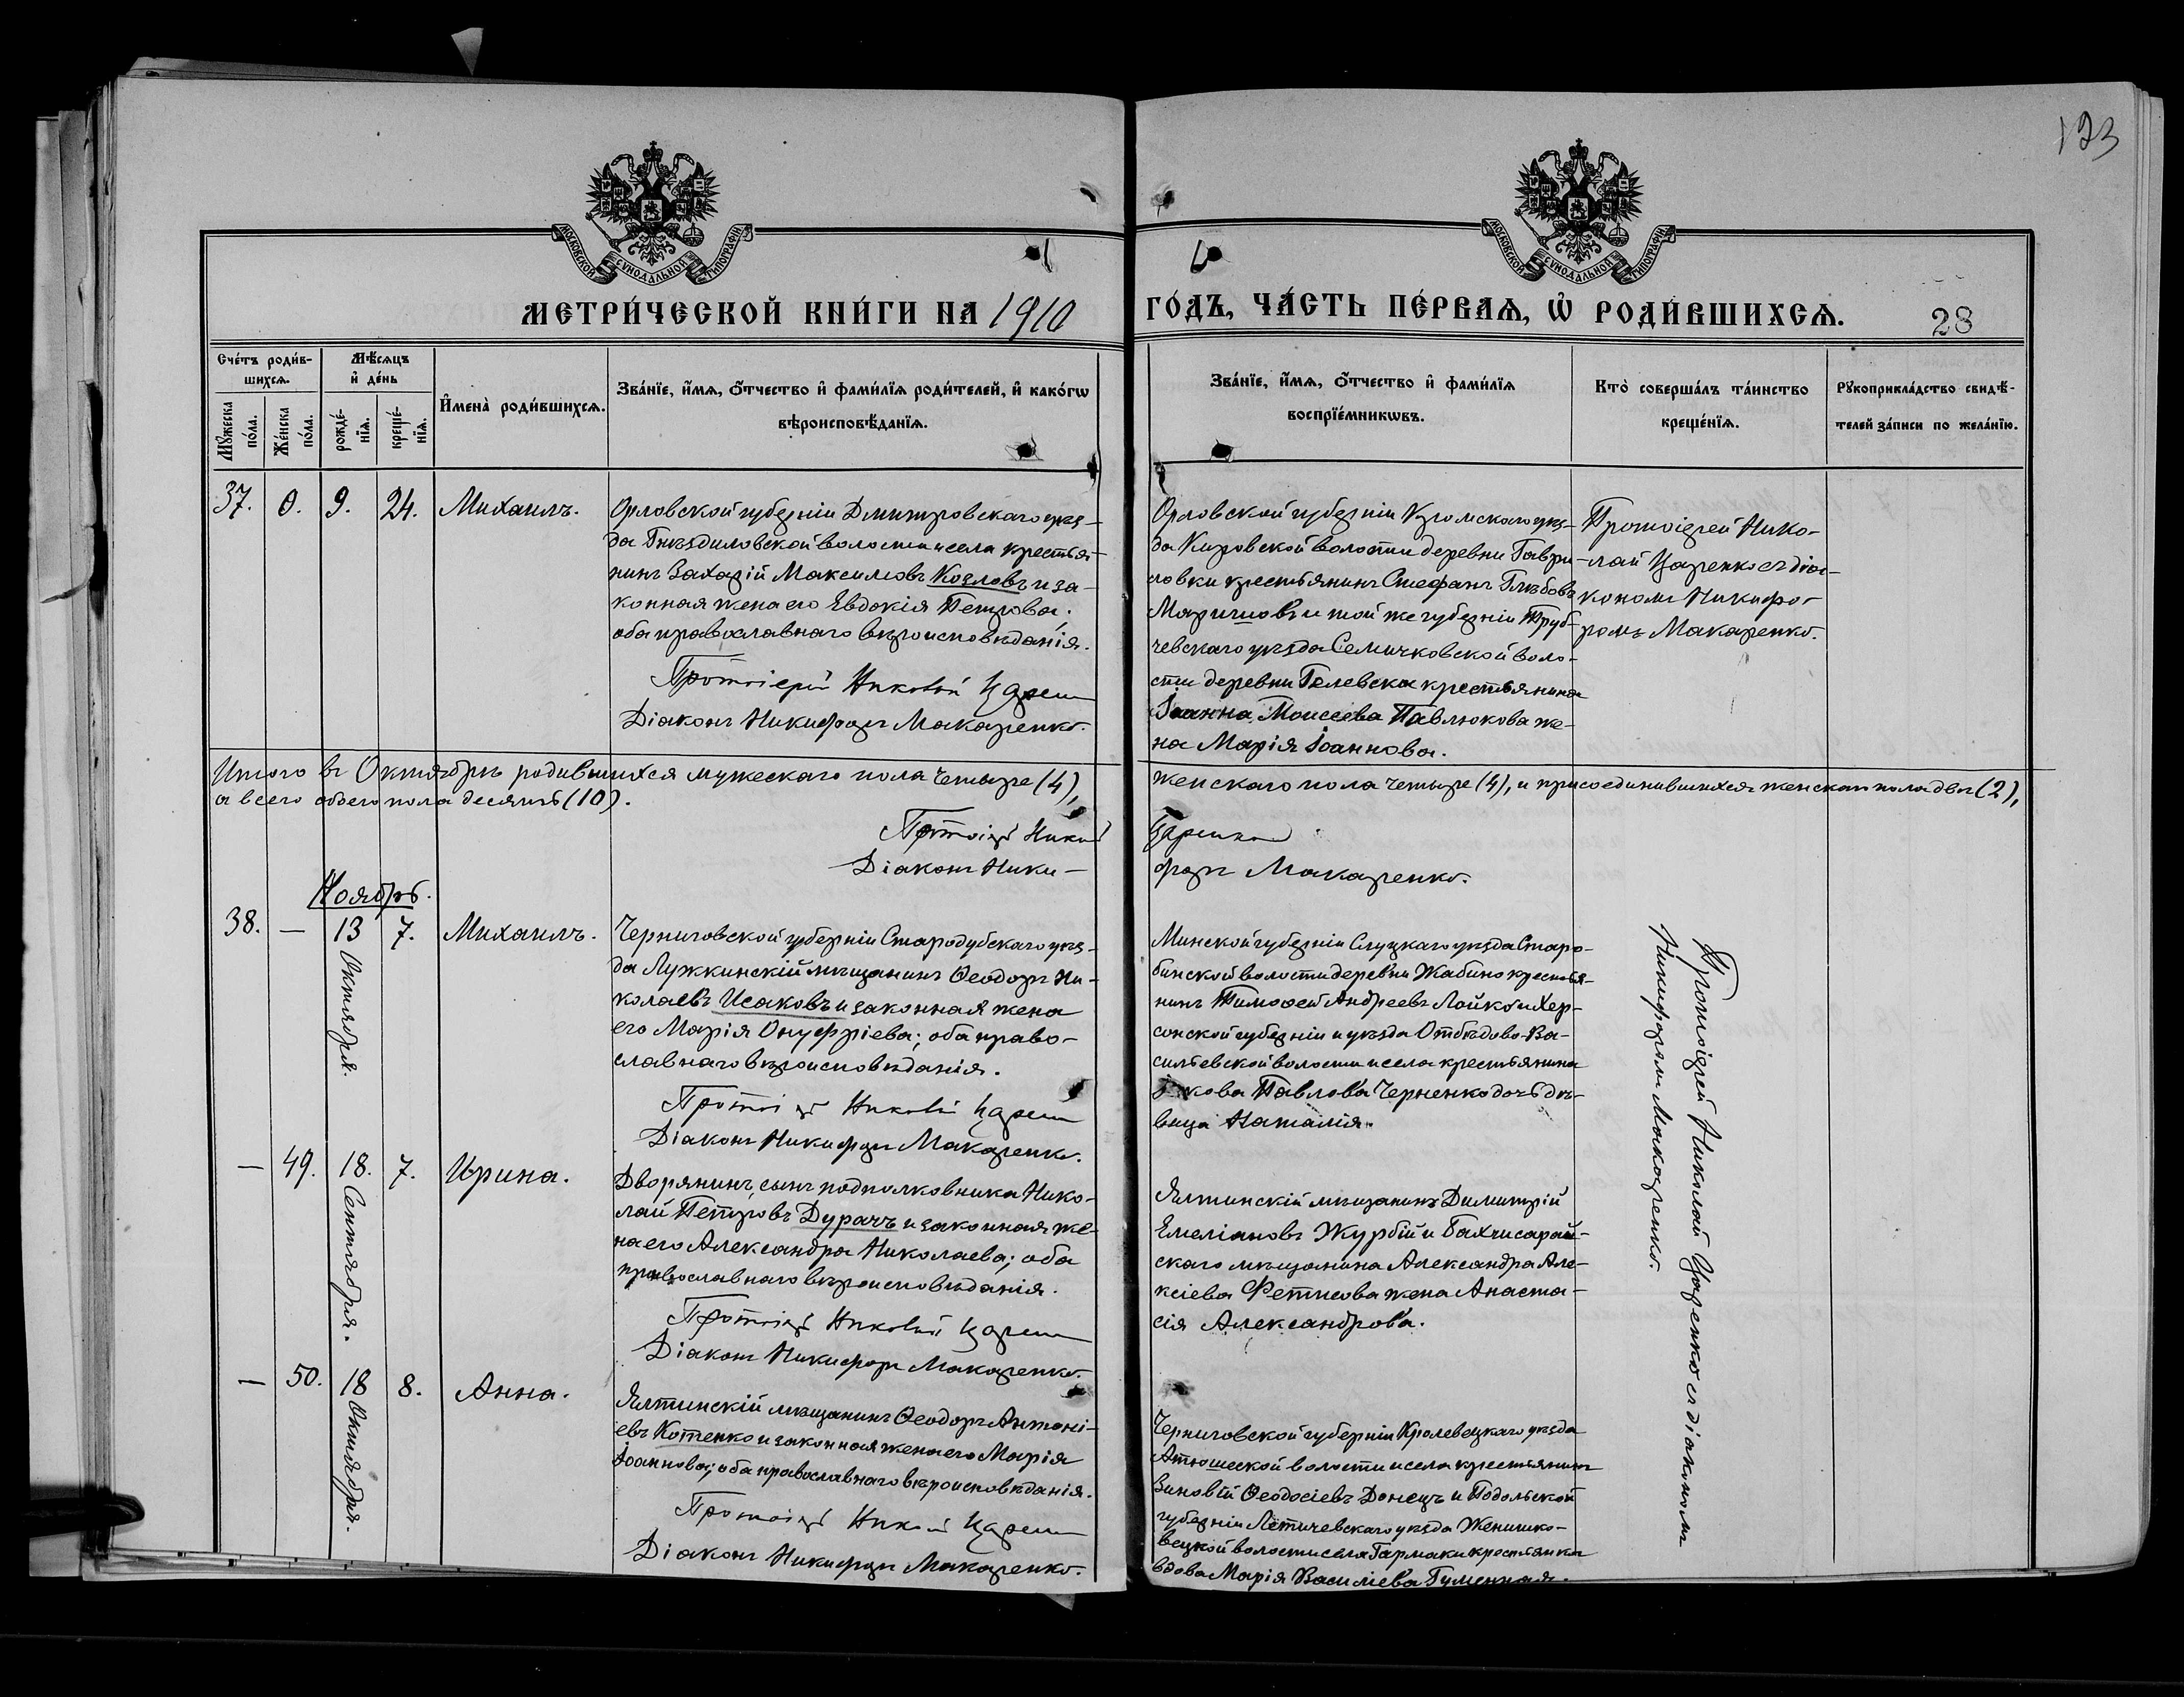 123
МОСКОВСКОЙ СУНОДАЛЬНОЙ ТИПОГРАФІИ
МОСКОВСКОЙ СУНОДАЛЬНОЙ ТИПОГРАФІИ
МЕТРИ́ЧЕСКОЙ КНИ́ГИ НА 1910
ГО́ДЪ, ЧА́СТЬ ПЕ́РВАѦ, Ѡ҆ РОДИ́ВШИХСѦ.
28
Сче́тъ роди́в-
шихсѧ.
Мꙋжеска
по́ла.
Же́нска
по́ла.
Мѣ́сѧцъ
и҆ де́нь
рожде́-
нїѧ.
креще́-
нїѧ.
И҆мена̀ роди́вшихсѧ.
Зва́нїе, и҆́мѧ, ѻ҆́тчество и҆ фами́лїѧ роди́телей, и҆ како́гѡ
вѣроисповѣ́данїѧ.
Зва́нїе, и҆́мѧ, ѻ҆́тчество и҆ фами́лїѧ
воспрїе́мникѡвъ.
Кто̀ соверша́лъ та́инство
креще́нїѧ.
Рꙋкоприкла́дство свидѣ́-
телей за́писи по жела́нїю.
37. 0. 9. 24. Михаилъ.
Орловской губерніи Дмитровскаго уѣз-
да Гнѣздиловской волости и села крестья-
нинъ Захарій Максимовъ Козловъ и за-
конная жена его Евдокія Петрова;
оба православнаго вѣроисповѣданія.
Протоіерей Николай Царенко
Діаконъ Никифоръ Макаренко.
Орловской губерніи Кромскаго уѣз-
да Кировской волости деревни Гаври-
ловки крестьянинъ Стефанъ Глѣбовъ
Маричновъ и той же губерніи Труб-
чевскаго уѣзда Семячковской воло-
сти деревни крестьянина
Іоанна Моисеева Павлюкова же-
на Марія Іоаннова.
Протоіерей Нико-
лай Царенко съ діа-
кономъ Никифо-
ромъ Макаренко.
Итого въ Октябрѣ родившихся мужескаго пола четыре (4),
женскаго пола четыре (4), и присоединившихся женскаго пола две (2),
а всего обоего пола десять (10).
Протоіерей Николай
Царенко
Діаконъ Ники-
форъ Макаренко.
Ноябрь.
38. — 13 Октября. 7. Михаилъ.
Черниговской губерніи Стародубскаго уѣз-
да Лужкинскій мѣщанинъ Ѳеодоръ Ни-
колаевъ Исаковъ и законная жена
его Марія Онуфріева; оба право-
славнаго вѣроисповѣданія.
Протоіерей Николай Царенко
Діаконъ Никифоръ Макаренко.
Минской губерніи Слуцкаго уѣзда Старо-
бинской волости деревни Жабино крестья-
нинъ Тимоѳей Андреевъ Лойко и Хер-
сонской губерніи и уѣзда Отбѣдово-Ва-
сильевской волости и села крестьянина
Іакова Павлова Черненко дочь дѣ-
вица Наталія.
Протоіерей Николай Царенко съ діакономъ
Никифоромъ Макаренко.
— 49. 18. Сентября. 7. Ирина.
Дворянинъ, сынъ подполковника Нико-
лай Петровъ Дурачъ и законная же-
на его Александра Николаева; оба
православнаго вѣроисповѣданія.
Протоіерей Николай Царенко
Діаконъ Никифоръ Макаренко.
Ялтинскій мѣщанинъ Димитрій
Емеліановъ Журбій и Бахчисарай-
скаго мѣщанина Александра Але-
ксіева Фетисова жена Анаста-
сія Александрова.
— 50. 18 Октября. 8. Анна.
Ялтинскій мѣщанинъ Ѳеодоръ Антоні-
евъ Котенко и законная жена его Марія
Іоаннова; оба православнаго вѣроисповѣданія.
Протоіерей Николай Царенко
Діаконъ Никифоръ Макаренко.
Черниговской губерніи Кролевецкаго уѣзда
Атюшеской волости и села крестьянинъ
Зиновій Ѳеодосіевъ Донецъ и Подольской
губерніи Летичевскаго уѣзда Женишко-
вецкой волости села Гармаки крестьянка
вдова Марія Василіева Гуменная.